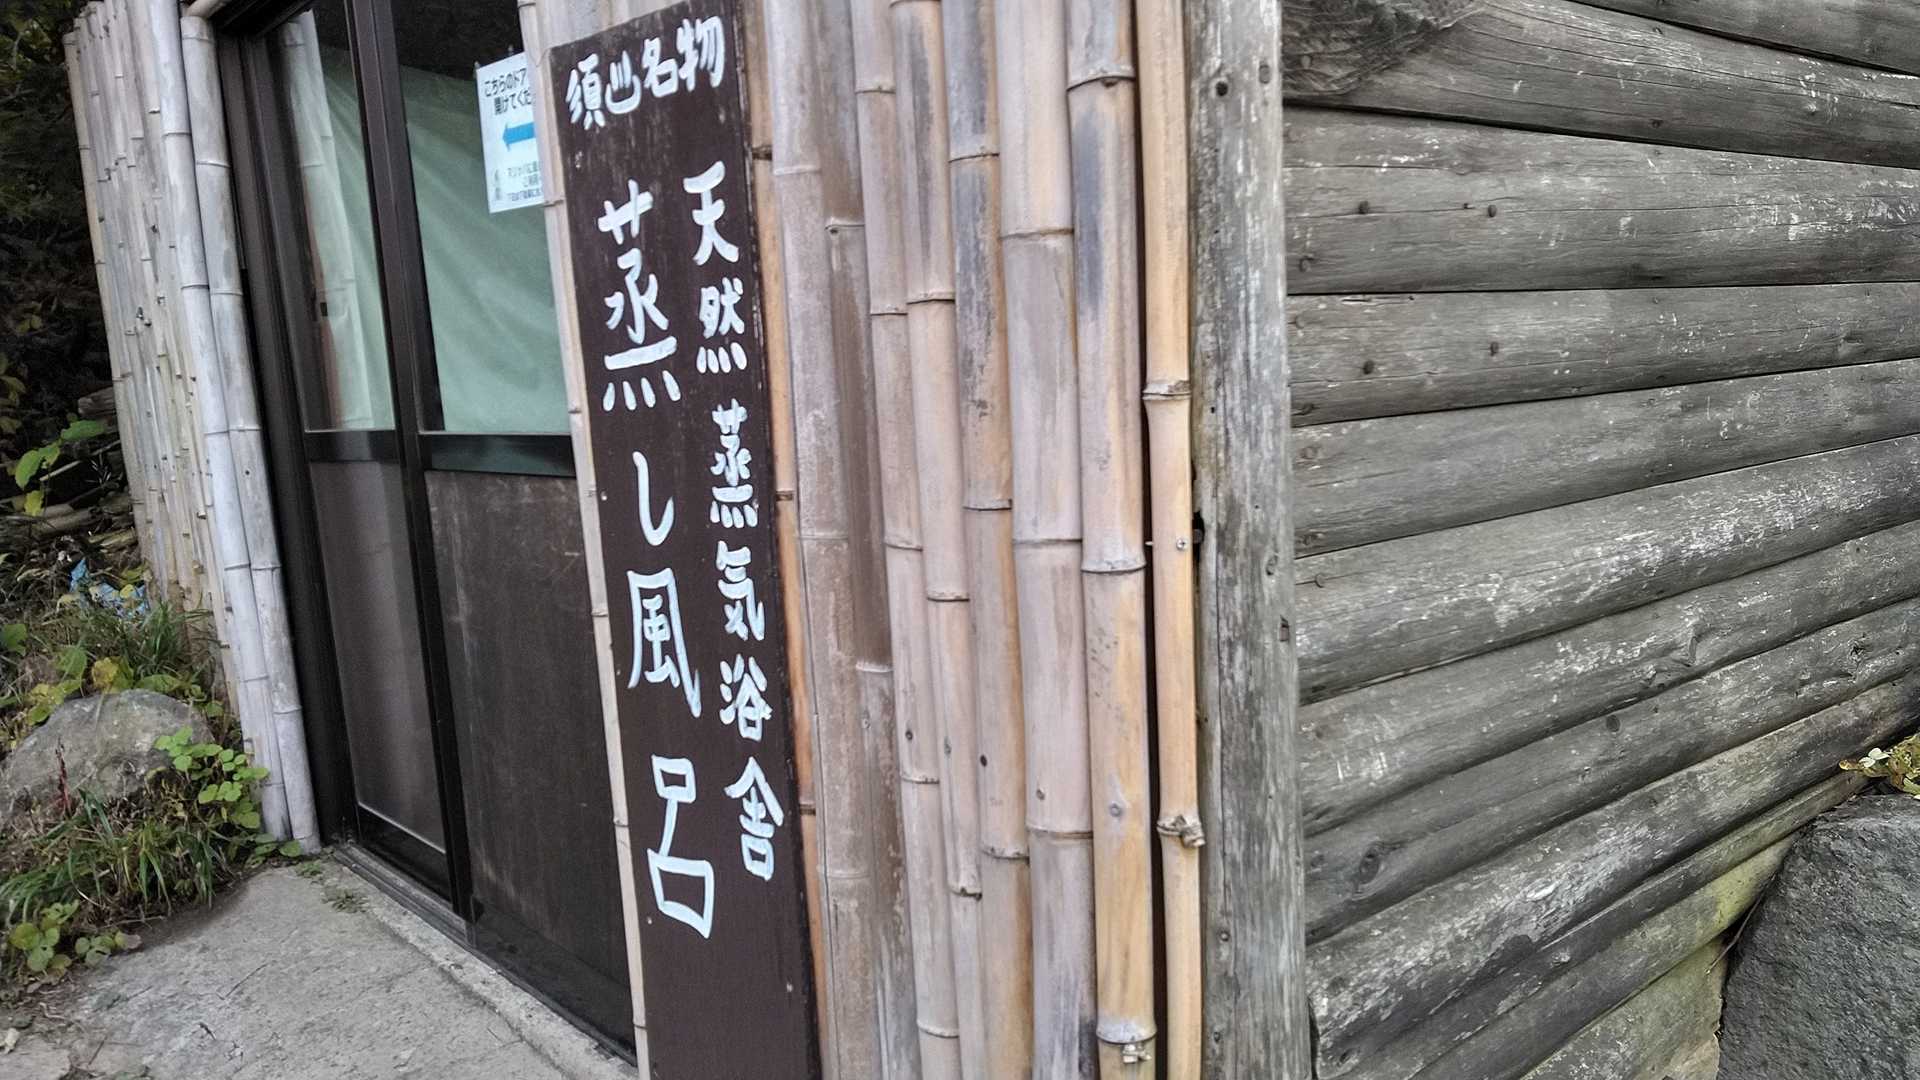 須山名物
天然蒸気浴舎
蒸し風呂
こちらのドア
開けてくだ